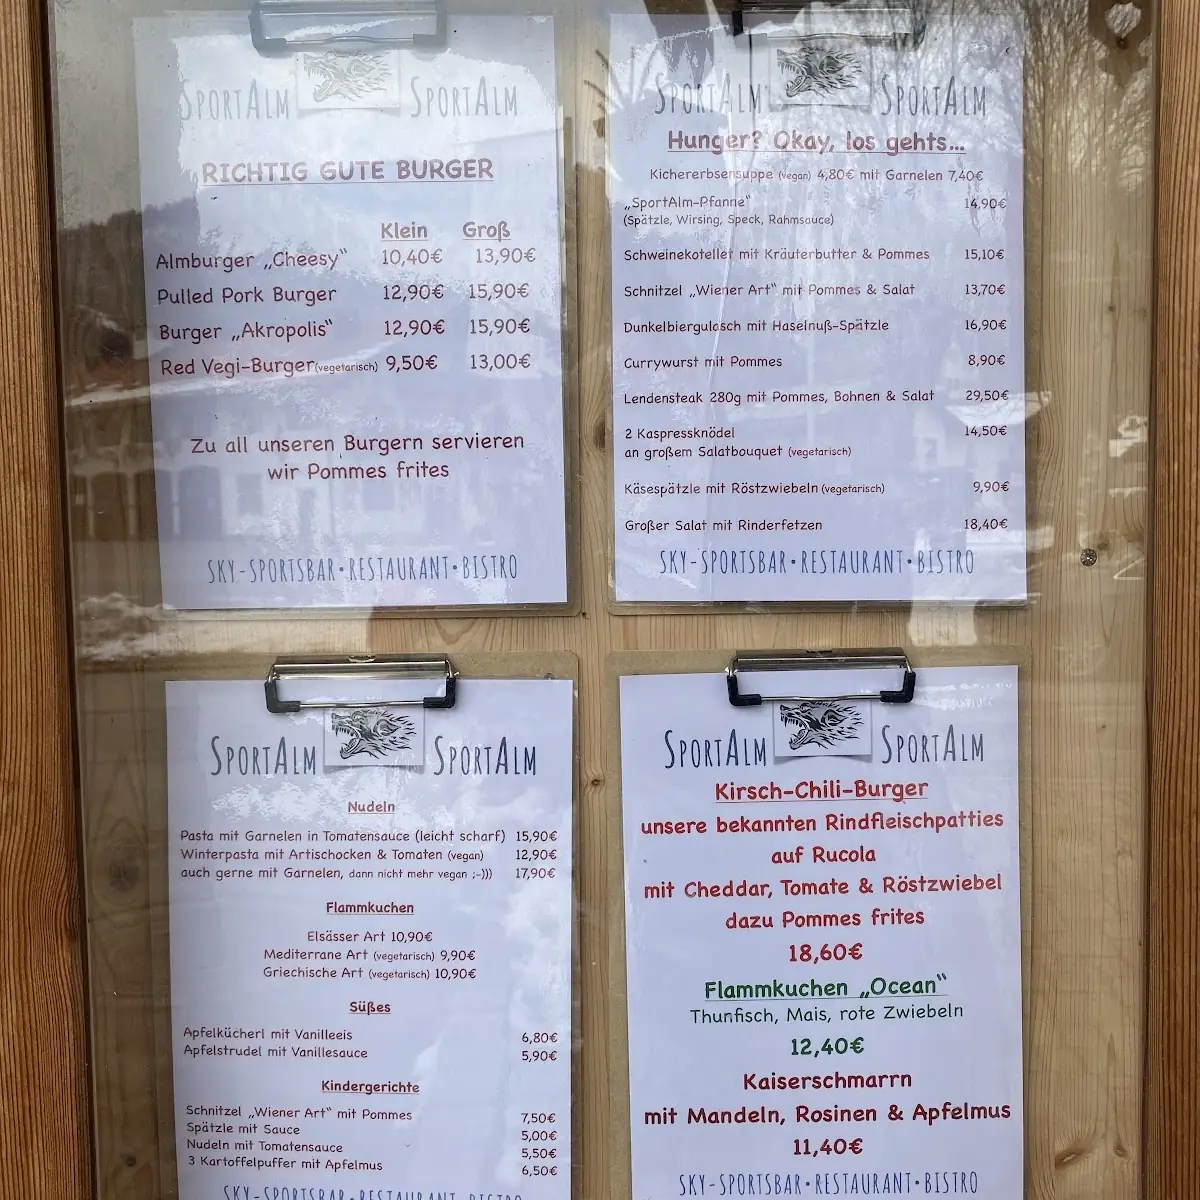 SPORTALM SPORTALM
RICHTIG GUTE BURGER
Klein Groß
Almburger „Cheesy“ 10,40€ 13,90€
Pulled Pork Burger 12,90€ 15,90€
Burger „Akropolis“ 12,90€ 15,90€
Red Vegi-Burger(vegetarisch) 9,50€ 13,00€
Zu all unseren Burgern servieren
wir Pommes frites
SKY-SPORTSBAR•RESTAURANT•BISTRO
SPORTALM SPORTALM
Hunger? Okay, los gehts...
Kichererbsensuppe (vegan) 4,80€ mit Garnelen 7,40€
„SportAlm-Pfanne“ 14,90€
(Spätzle, Wirsing, Speck, Rahmsauce)
Schweinekotellet mit Kräuterbutter & Pommes 15,10€
Schnitzel „Wiener Art“ mit Pommes & Salat 13,70€
Dunkelbiergulasch mit Haselnuß-Spätzle 16,90€
Currywurst mit Pommes 8,90€
Lendensteak 280g mit Pommes, Bohnen & Salat 29,50€
2 Kaspressknödel 14,50€
an großem Salatbouquet (vegetarisch)
Käsespätzle mit Röstzwiebeln (vegetarisch) 9,90€
Großer Salat mit Rinderfetzen 18,40€
SKY-SPORTSBAR•RESTAURANT•BISTRO
SPORTALM SPORTALM
Nudeln
Pasta mit Garnelen in Tomatensauce (leicht scharf) 15,90€
Winterpasta mit Artischocken & Tomaten (vegan) 12,90€
auch gerne mit Garnelen, dann nicht mehr vegan ;-))) 17,90€
Flammkuchen
Elsässer Art 10,90€
Mediterrane Art (vegetarisch) 9,90€
Griechische Art (vegetarisch) 10,90€
Süßes
Apfelkücherl mit Vanilleeis 6,80€
Apfelstrudel mit Vanillesauce 5,90€
Kindergerichte
Schnitzel „Wiener Art“ mit Pommes 7,50€
Spätzle mit Sauce 5,00€
Nudeln mit Tomatensauce 5,50€
3 Kartoffelpuffer mit Apfelmus 6,50€
SKY-SPORTSBAR•RESTAURANT•BISTRO
SPORTALM SPORTALM
Kirsch-Chili-Burger
unsere bekannten Rindfleischpatties
auf Rucola
mit Cheddar, Tomate & Röstzwiebel
dazu Pommes frites
18,60€
Flammkuchen „Ocean“
Thunfisch, Mais, rote Zwiebeln
12,40€
Kaiserschmarrn
mit Mandeln, Rosinen & Apfelmus
11,40€
SKY-SPORTSBAR•RESTAURANT•BISTRO